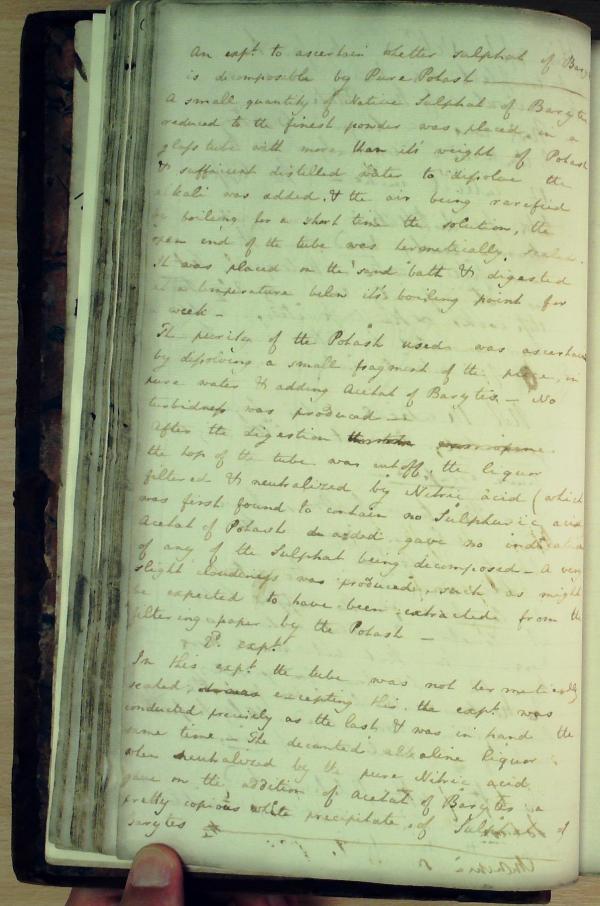 An expt. to ascertain whether sulphat of Bary
is decomposable by Pure Potash
A small quantity of Native Sulphat of Barytes
reduced to the finest powder was placed in a
glass tube with more than it's weight of Potash
& sufficient distilled water to dissolve the
alkali was added, & the air being rarefied
by boiling for a short time the solution, the
open end of the tube was hermetically sealed.
It was placed on the sand bath & digested
at a temperature below it's boiling point for
a week –
The purity of the Potash used was ascertain
by dissolving a small fragment of the piece, in
pure water & adding Acetat of Barytes – No
turbidness was produced –
After the digestion
the top of the tube was cut off, the liquor
filtered & neutralized by Nitric acid (which
was first found to contain no Sulphuric acid
Acetat of Potash added gave no indication
of any of the Sulphat being decomposed – A very
slight cloudiness was produced, such as might
be expected to have been extracted from the
filtering paper by the Potash –
2d. expt.
In this expt. the tube was not hermetically
sealed, excepting this the expt. was
conducted precisely as the last & was in hand the
same time – The decanted alkaline liquor
when neutralized by the pure Nitric acid
gave on the addition of Acetat of Barytes a
pretty copious white precipitate of Sulphat of
barytes